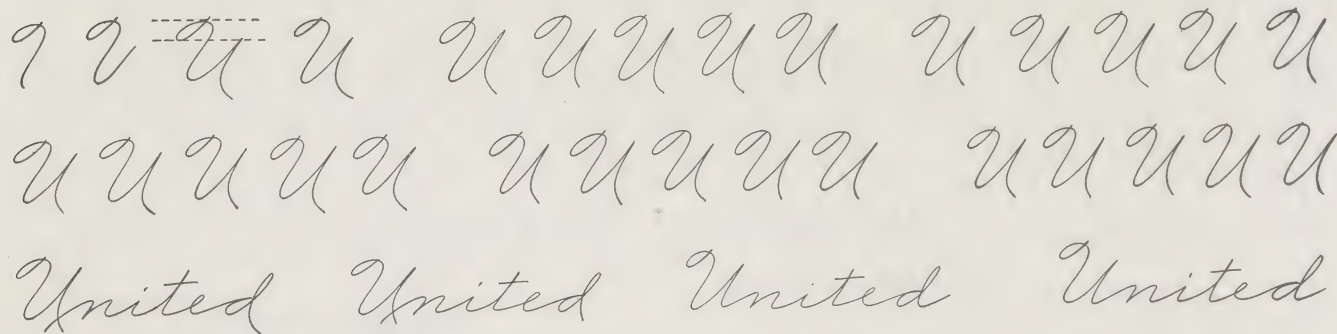 U U U U U U U U U U U U
U U U U U U U U U U U U U U U
United United United United